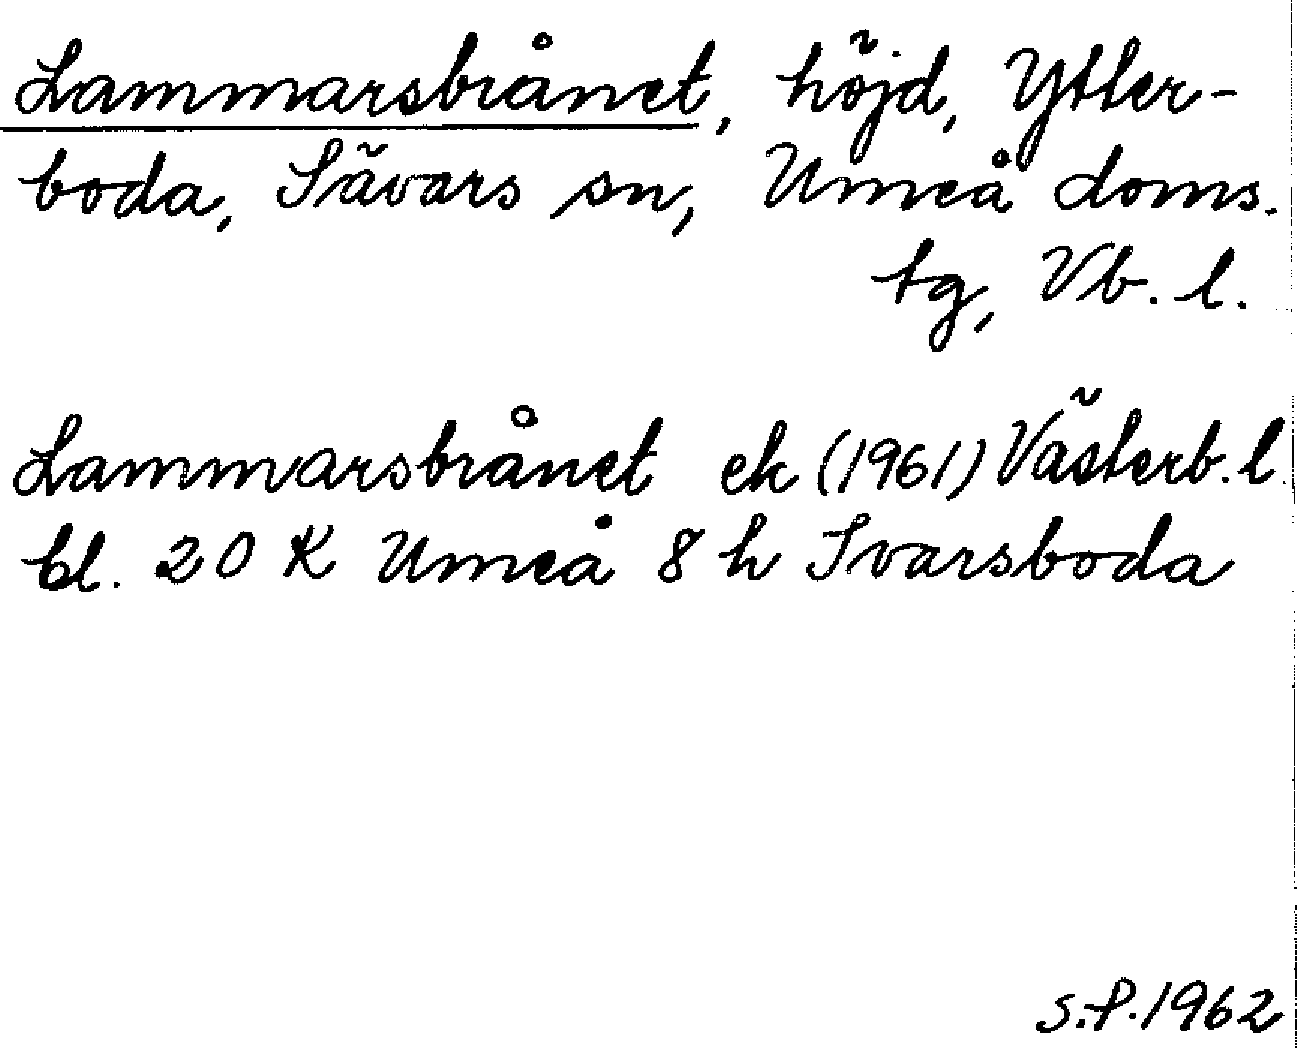 Lammarsbrånet, höjd, Ytter-
boda, Sävars sn, Umeå doms.
tg, Vb. l.
Lammarsbrånet ek (1961) Västerb. l.
bl. 20 K Umeå 8 h Ivarsboda
S.P. 1962